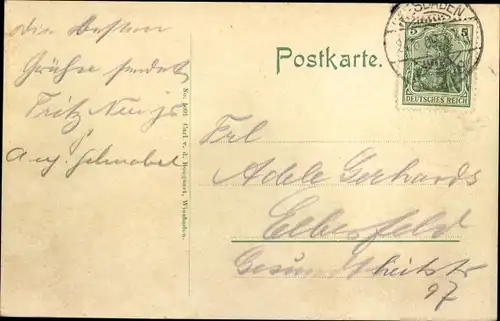 die besten
Grüße sendet
Fritz
Aug. Schnabel
No. Carl v. d. Boogaart, Wiesbaden.
Postkarte.
WIESBADEN
5 5
DEUTSCHES REICH
Frl
Adele Gerhards
Elberfeld
97